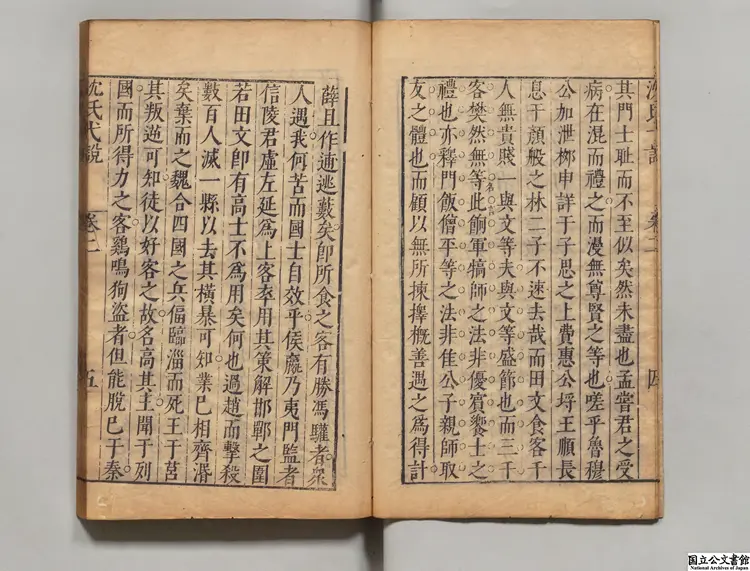 其門士耻而不至似矣然未盡也孟嘗君之受
病在混而禮之而漫無尊賢之等也嗟乎魯穆
公加泄桞申詳于子思之上費惠公埒王順長
息于顔般之林二子不速去哉而田文食客千
人無貴賤一與文等夫與文等盛節也而三千
客樊然無等此餉軍犒師之法非優賓饗士之
禮也亦釋門飯僧平等之法非隹公子親師取
友之體也而顧以無所揀擇槪善遇之爲得計
四
薛且作逋逃藪矣卽所食之客有勝馮驩者衆
人遇我何苦而國士自效乎侯嬴乃夷門監者
信陵君虛左延爲上客卒用其策解邯鄲之圍
若田文卽有高士不爲用矣何也過趙而擊殺
數百人滅一縣以去其橫暴可知業已相齊湣
矣棄而之魏合四國之兵偪臨淄而死王于莒
其叛逆可知徒以好客之故名高其主聞于列
國而所得力之客鷄鳴狗盜者但能脫已于秦
沈氏弋說 卷二 五
国立公文書館
National Archives of Japan